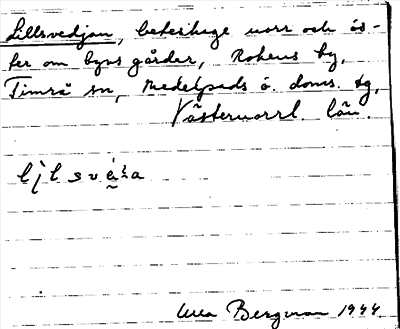 Lillsvedjan, beteshage norr och ös-
ter om byns gårdar, Rokens by,
Timrå sn, Medelpads ö. doms. tg,
Västernorrl. län.
Bergman 1944